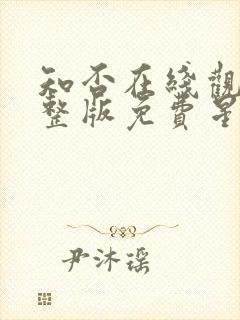 知否在綫觀
整版免費星
尹沐瑶